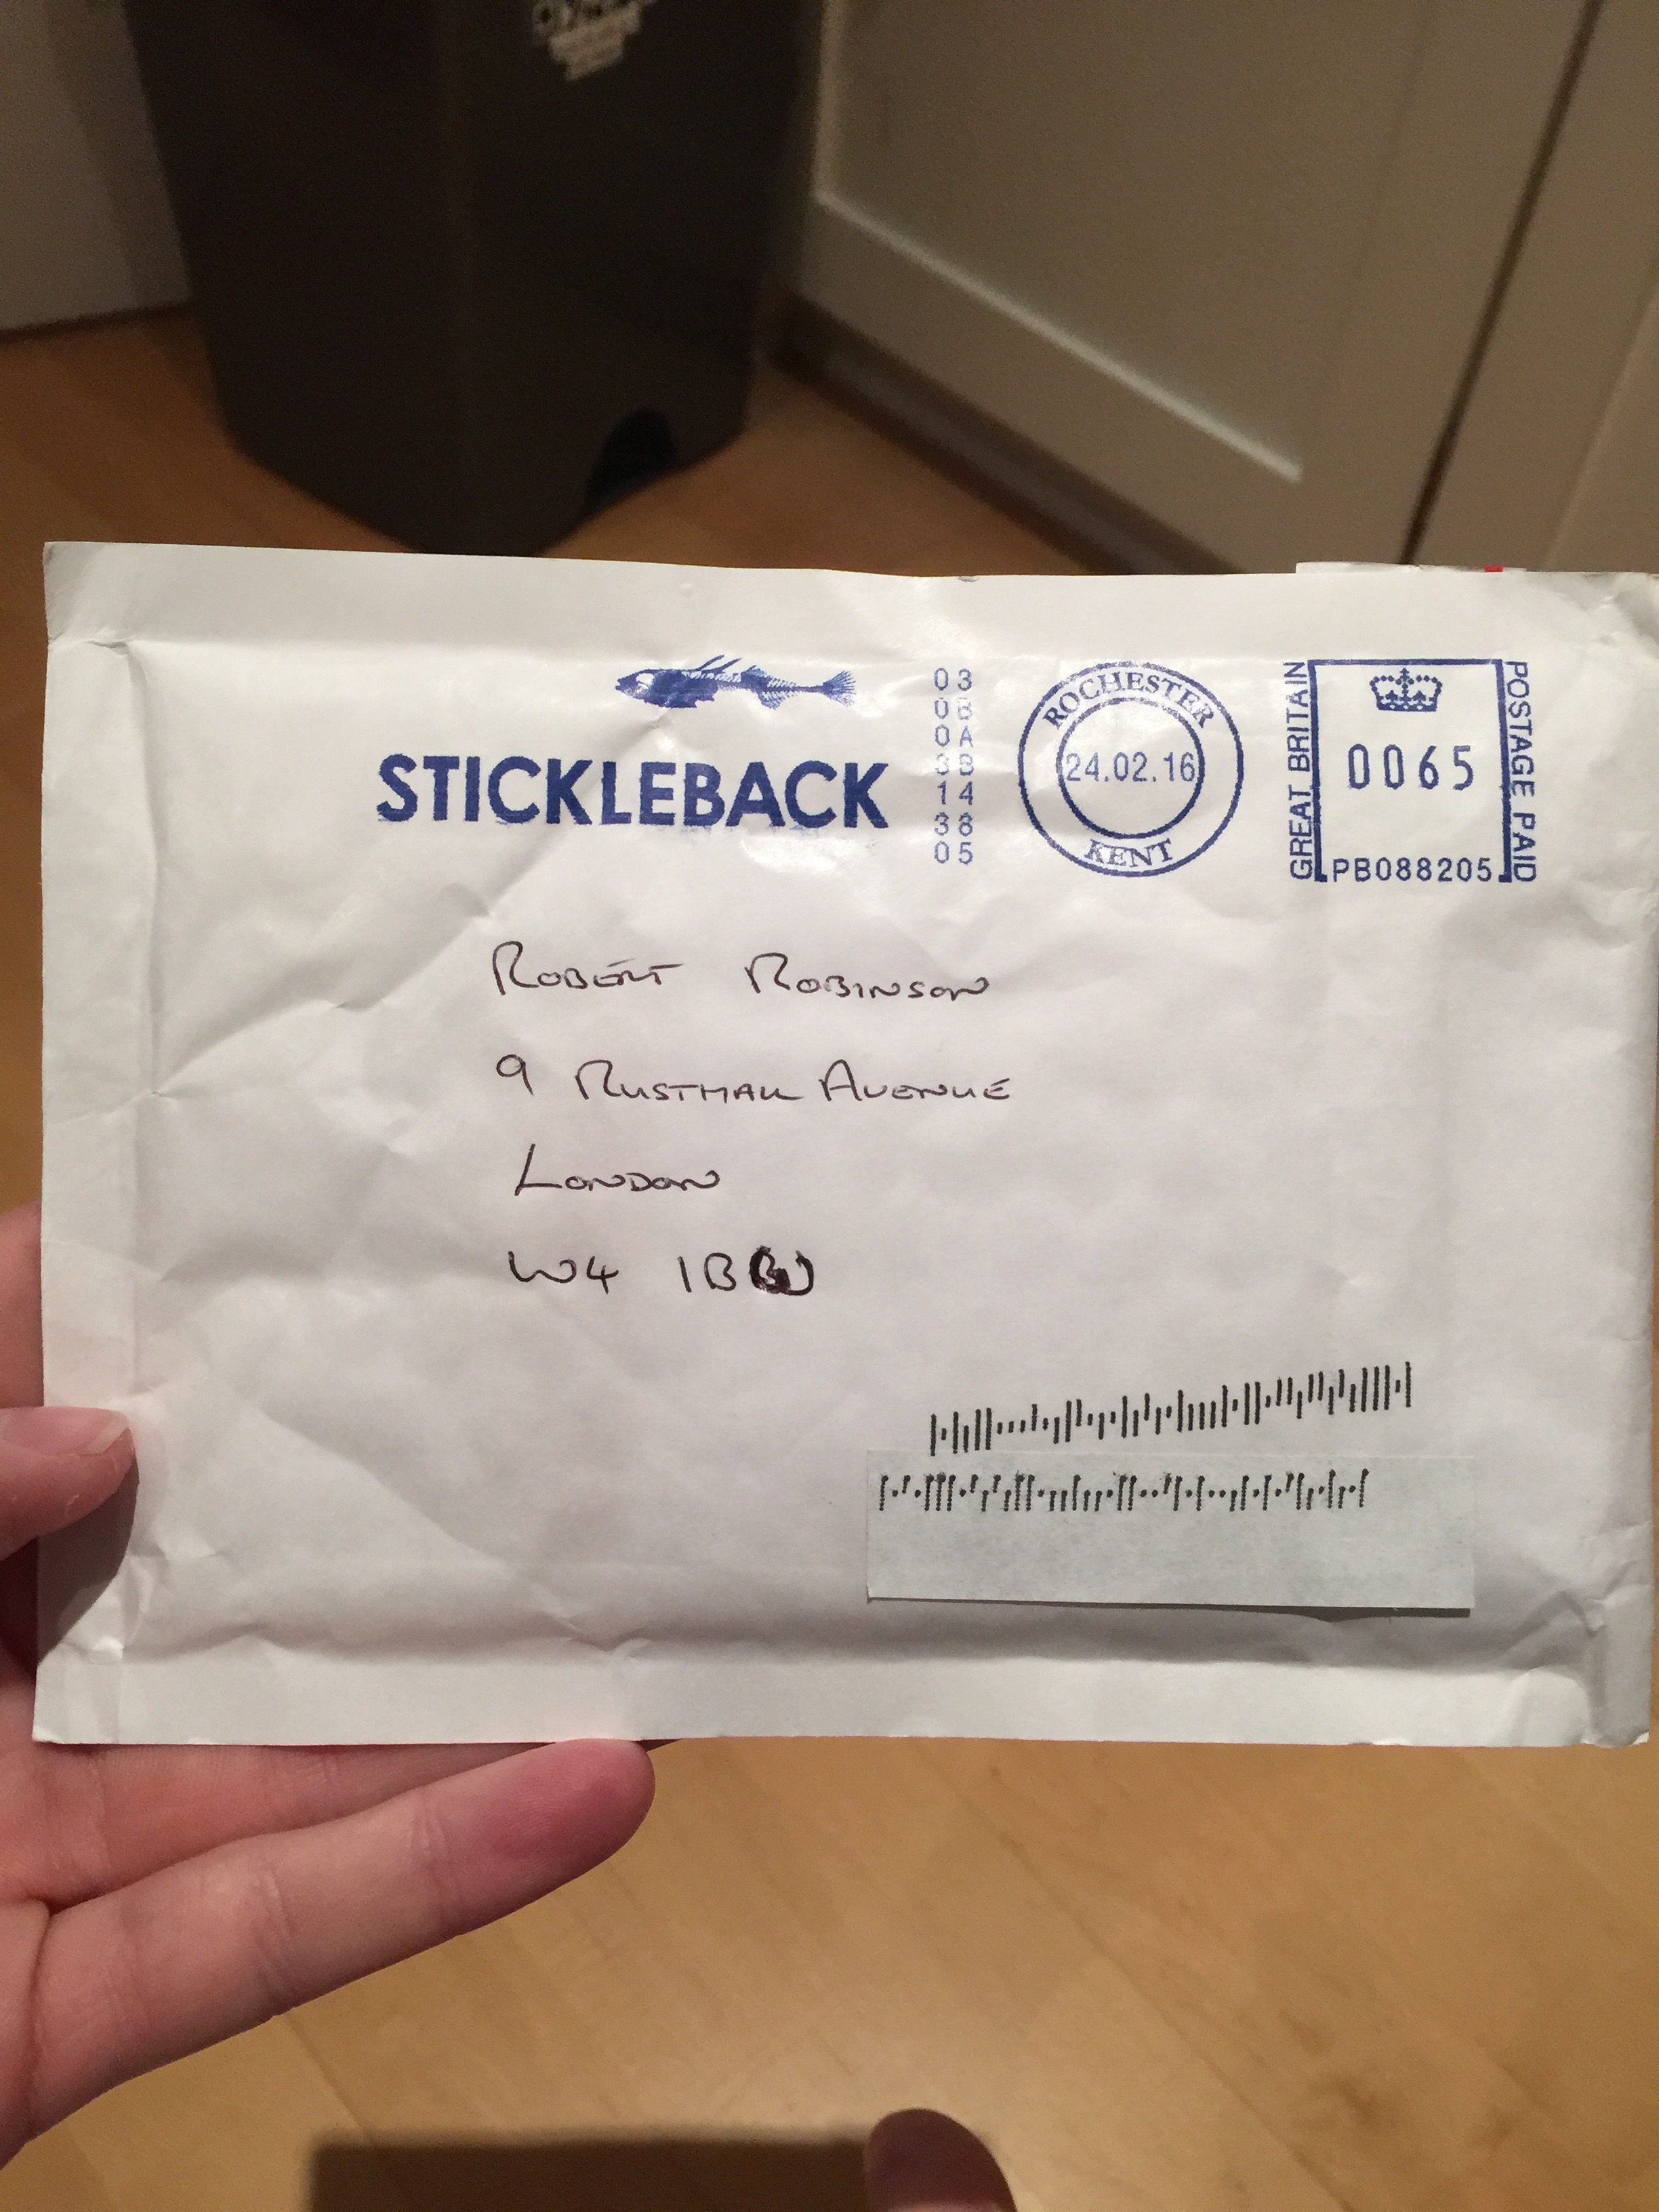 STICKLEBACK
03
0B
0A
3B
14
38
05
ROCHESTER
24.02.16
KENT
GREAT BRITAIN
0065
PB088205
POSTAGE PAID
ROBERT ROBINSON
9 RUSTHALL AVENUE
LONDON
W4 1BW